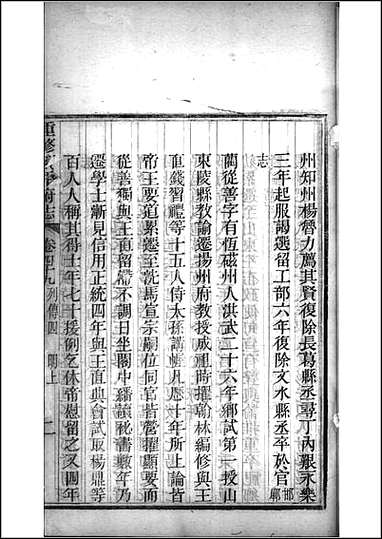 州知州楊瞥力薦其賢復除長葛縣丞尋丁內艱永樂
三年起服謁選留工部六年復除文水縣丞卒於官邯鄲
志
藺從善字有恆磁州人洪武二十六年鄉試第一授山
東陵縣敎諭遷揚州府敎授成祖時擢翰林編修與王
直錢習禮等十五人侍太孫講幄凡懸十年所上論皆
帝王要道累遷至洗馬宣宗嗣位同官皆登擢顯要而
從善獨與王直留滯不調日坐閣中繙錄祕書數年乃
遷學士漸見信用正統四年與王直典會試取楊鼎等
百人人稱其得士年七十援例乞休帝慰留之又四年
重修廣平府志 卷四十九 列傳四 明上 一一